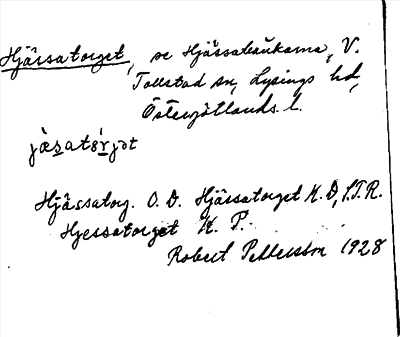 Hjässatorget, se Hjässabäukarna, V.
Tollstad sn, Lysings hd,
Östergötlands l.
jæ̀satórjət
Hjässatorg. O. D. Hjässatorget K. D, S.T.R.
Hjessatorget K. P.
Robert Pettersson 1928